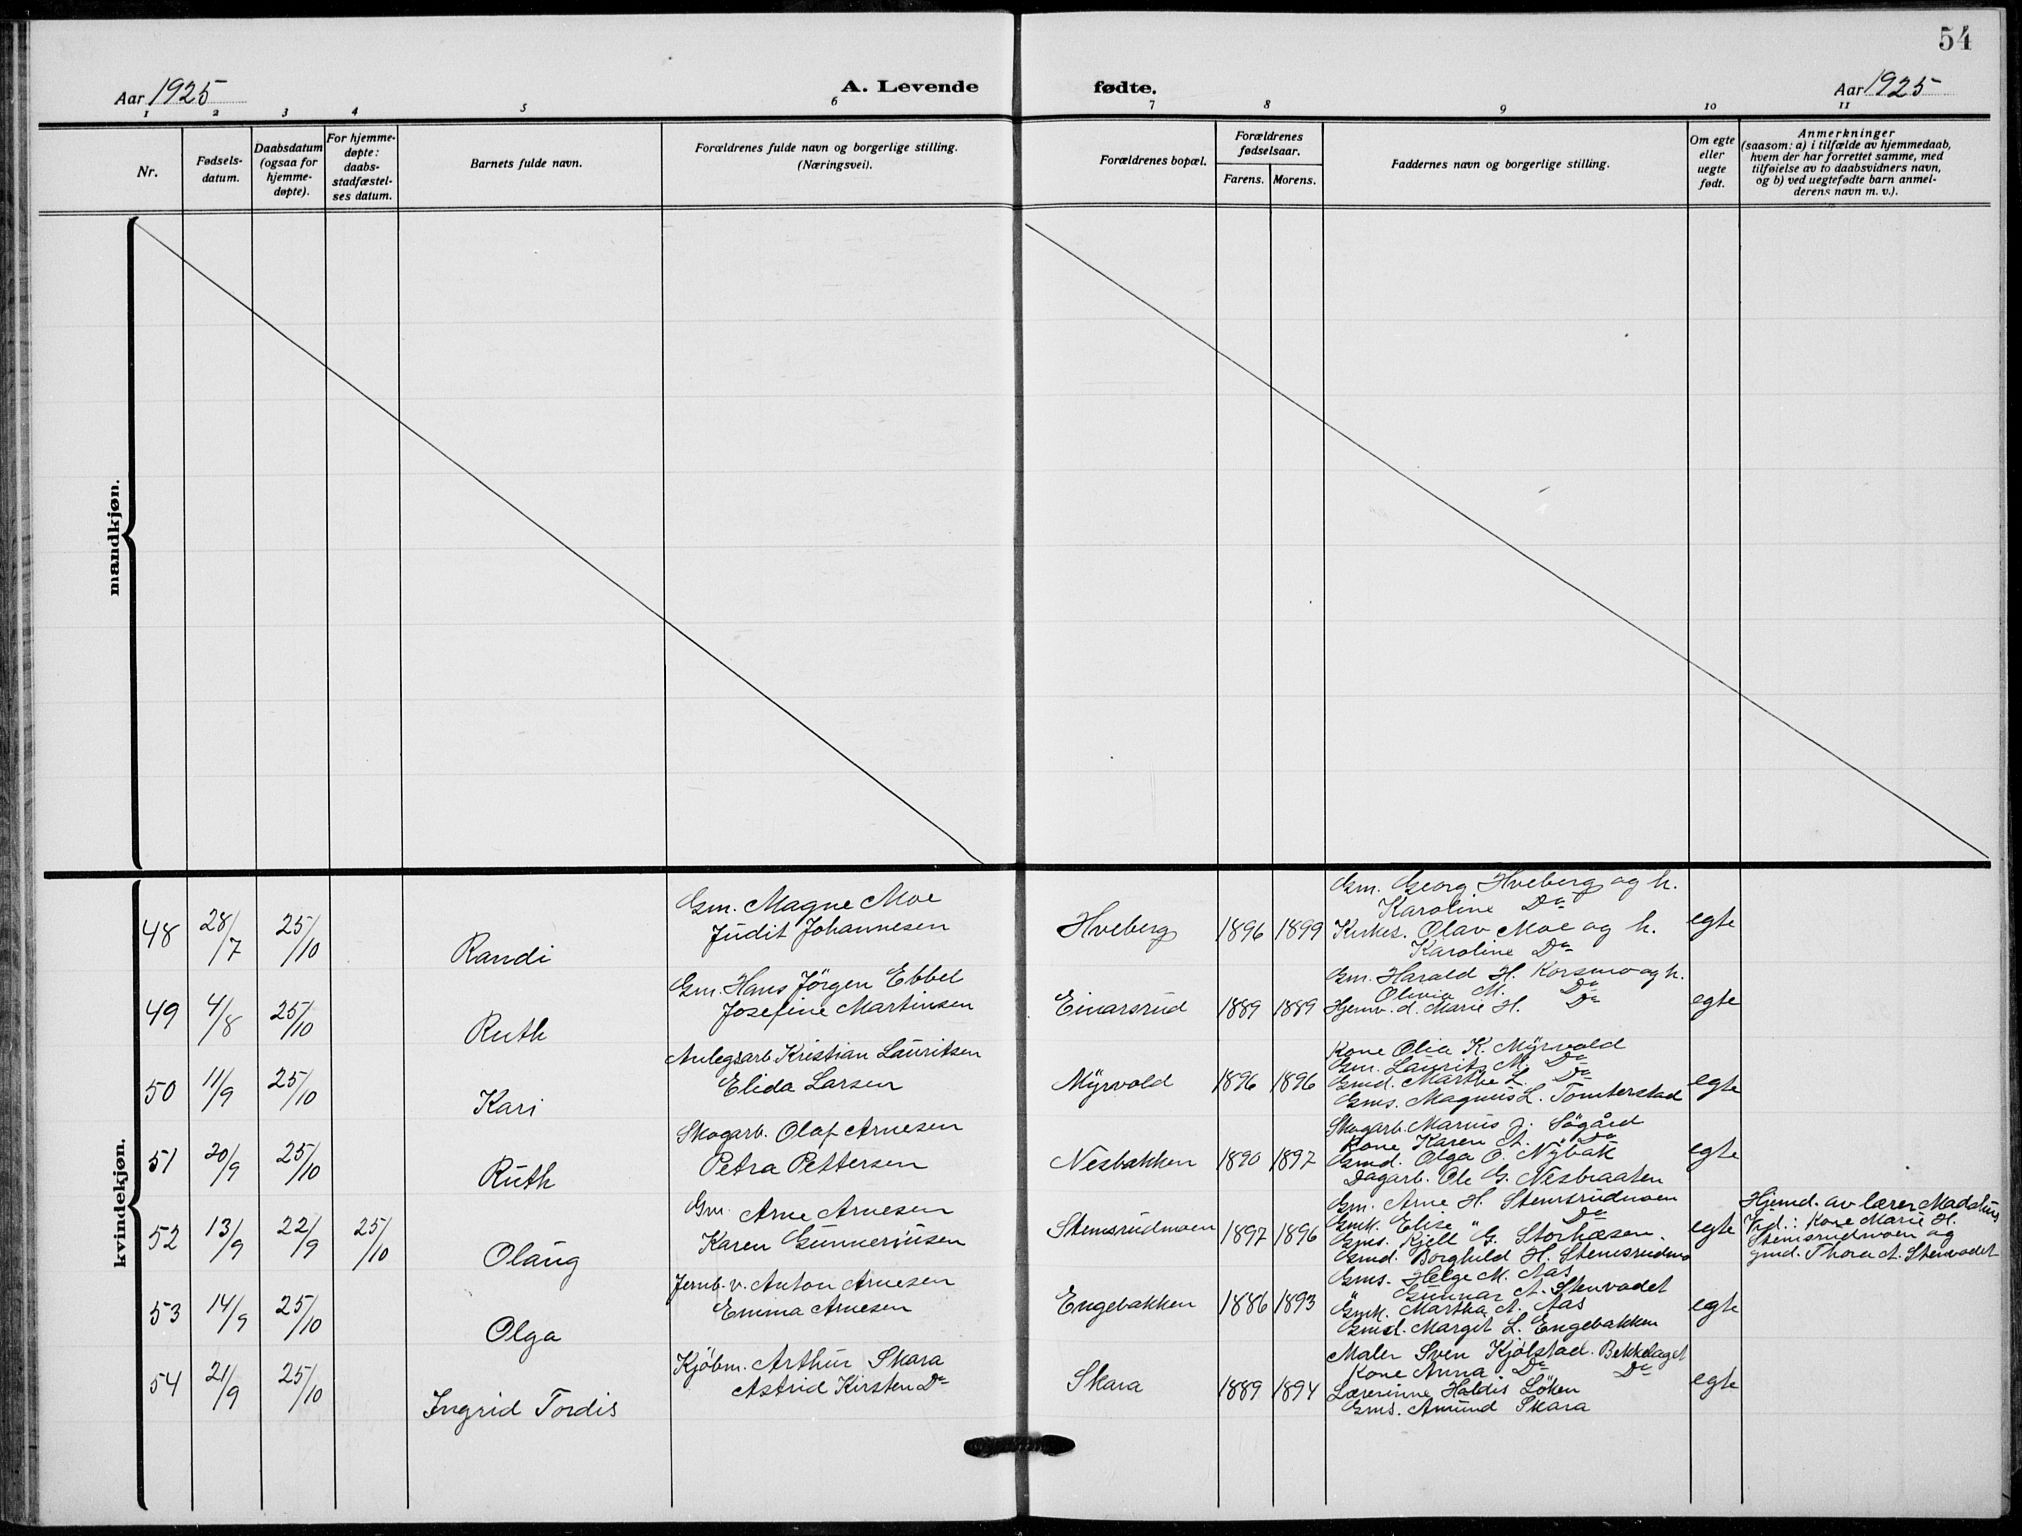 54
Aar 1925
A. Levende fødte.
Aar 1925
1 2 3 4 5 6 7 8 9 10 11
Nr.
Fødsels-
datum.
Daabsdatum
(ogsaa for
hjemme-
døpte).
For hjemme-
døpte:
daabs-
stadfæstel-
ses datum.
Barnets fulde navn.
Forældrenes fulde navn og borgerlige stilling.
(Næringsvei).
Forældrenes bopæl.
Forældrenes
fødselsaar.
Farens. Morens.
Faddernes navn og borgerlige stilling.
Om egte
eller
uegte
født.
Anmerkninger
(saasom: a) i tilfælde av hjemmedaab,
hvem der har forrettet samme, med
tilføielse av to daabsvidners navn,
og b) ved uegtefødte barn anmel-
derens navn m. v.).
mandkjøn.
kvindekjøn.
48 28/7 25/10 Randi
Gm. Magne Moe
Judit Johannesen
Hveberg 1896 1899
Gm. Georg Hveberg og h.
Karoline Do
Kirkes. Olav Moe og h.
Karoline Do
egte
49 4/8 25/10 Ruth
Gm. Hans Jörgen Ebbel
Josefine Martinsen
Einarsrud 1889 1889
Gm. Harald H. Korsmo og h.
Olivia M. Do
Hjemv. d. Marie H. Do
egte
50 11/9 25/10 Kari
Anlegsarb. Kristian Lauritsen
Elida Larsen
Myrvold 1896 1896
Kone Olia K. Myrvold
Gm. Laurits M. Do
Gmd. Marthe L. Do
Gms. Magnus L. Tomterstad
egte
51 20/9 25/10 Ruth
Skogarb. Olaf Arnesen
Petra Pettersen
Nesbakken 1890 1897
Skogarb. Marius J. Sögård
Kone Karen A. Do
Gmd. Olga O. Nybak
Dagarb. Ole G. Nesbraaten
egte
52 13/9 22/9 25/10 Olaug
Gm. Arne Arnesen
Karen Gunneriusen
Stemsrudmoen 1897 1896
Gm. Arne H. Stemsrudmoen
Gmk. Elise " Do
Gms. Kjell G. Storhæsen.
Gmd. Borghild H. Stemsrudmo
egte
Hjemd. av lærer Madshus
Vid.: Kone Marie H.
Stemsrudmoen og
gmd. Thora A. Stenvadet
53 14/9 25/10 Olga
Jernb. v. Anton Arnesen
Emma Arnesen
Engebakken 1886 1893
Gms. Helge M. Aas
" Gunnar A. Stenvadet
Gmk. Martha A. Aas
Gmd. Margit L. Engebakken
egte
54 21/9 25/10 Ingrid Tordis
Kjöbm. Arthur Skara
Astrid Kirsten Do
Skara 1889 1894
Maler Sven Kjölstad. Bekkelaget
Kone Anna Do Do
Lærerinne Haldis Löken
Gms. Amund Skara
egte